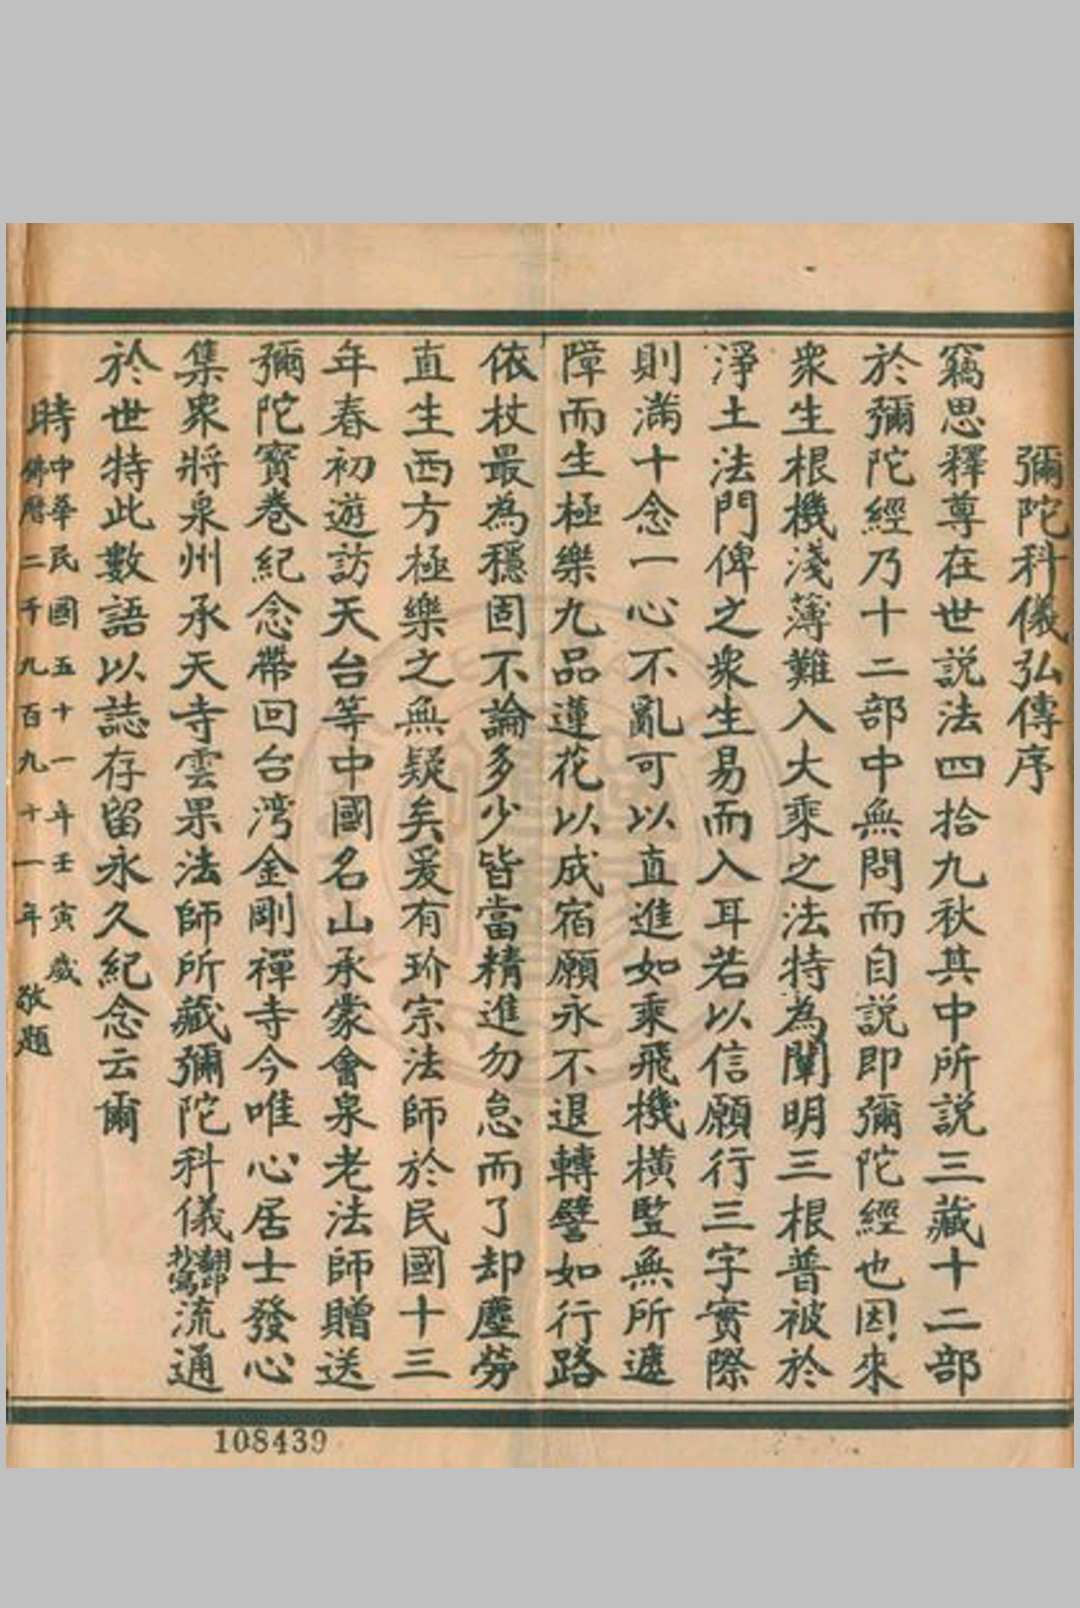 彌陀科儀弘傳序
竊思釋尊在世説法四拾九秋其中所説三藏十二部
於彌陀經乃十二部中無問而自説即彌陀經也因來
衆生根機淺薄難入大乘之法特為闡明三根普被於
淨土法門俾之衆生易而入耳若以信願行三字實際
則滿十念一心不亂可以直進如乘飛機橫監無所遮
障而生極樂九品蓮花以成宿願永不退轉譬如行路
依杖最為穩固不論多少皆當精進勿怠而了却塵勞
直生西方極樂之無疑矣爰有玠宗法師於民國十三
年春初遊訪天台等中國名山承蒙會泉老法師贈送
彌陀寶卷紀念帶回台湾金剛禪寺今唯心居士發心
集衆將泉州承天寺雲果法師所藏彌陀科儀翻印抄寫流通
於世特此數語以誌存留永久紀念云爾
時中華民國五十一年壬寅歲
佛曆二千九百九十一年 敬題
108439